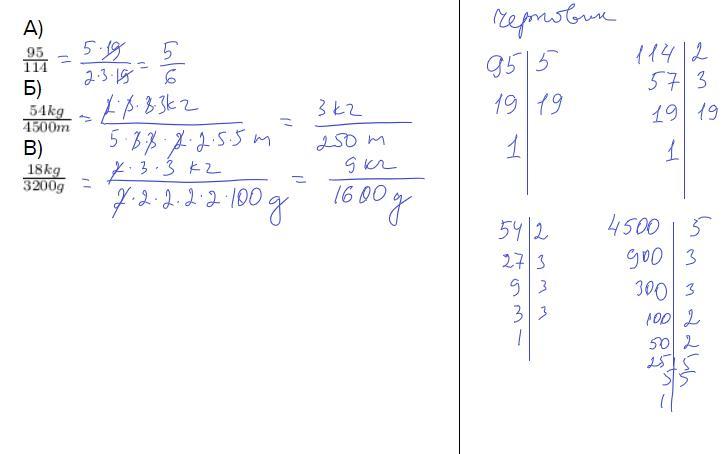 А)
95/114 = 5·19/2·3·19 = 5/6
Б)
54kg/4500m = 2·3·3·3кг/5·3·3·2·2·5·5 m = 3кг/250 m
В)
18kg/3200g = 2·3·3 кг/2·2·2·2·2·100 g = 9кг/1600 g
черновик
95 | 5
19 | 19
1
114 | 2
57 | 3
19 | 19
1
54 | 2
27 | 3
9 | 3
3 | 3
1
4500 | 5
900 | 3
300 | 3
100 | 2
50 | 2
25 | 5
5 | 5
1